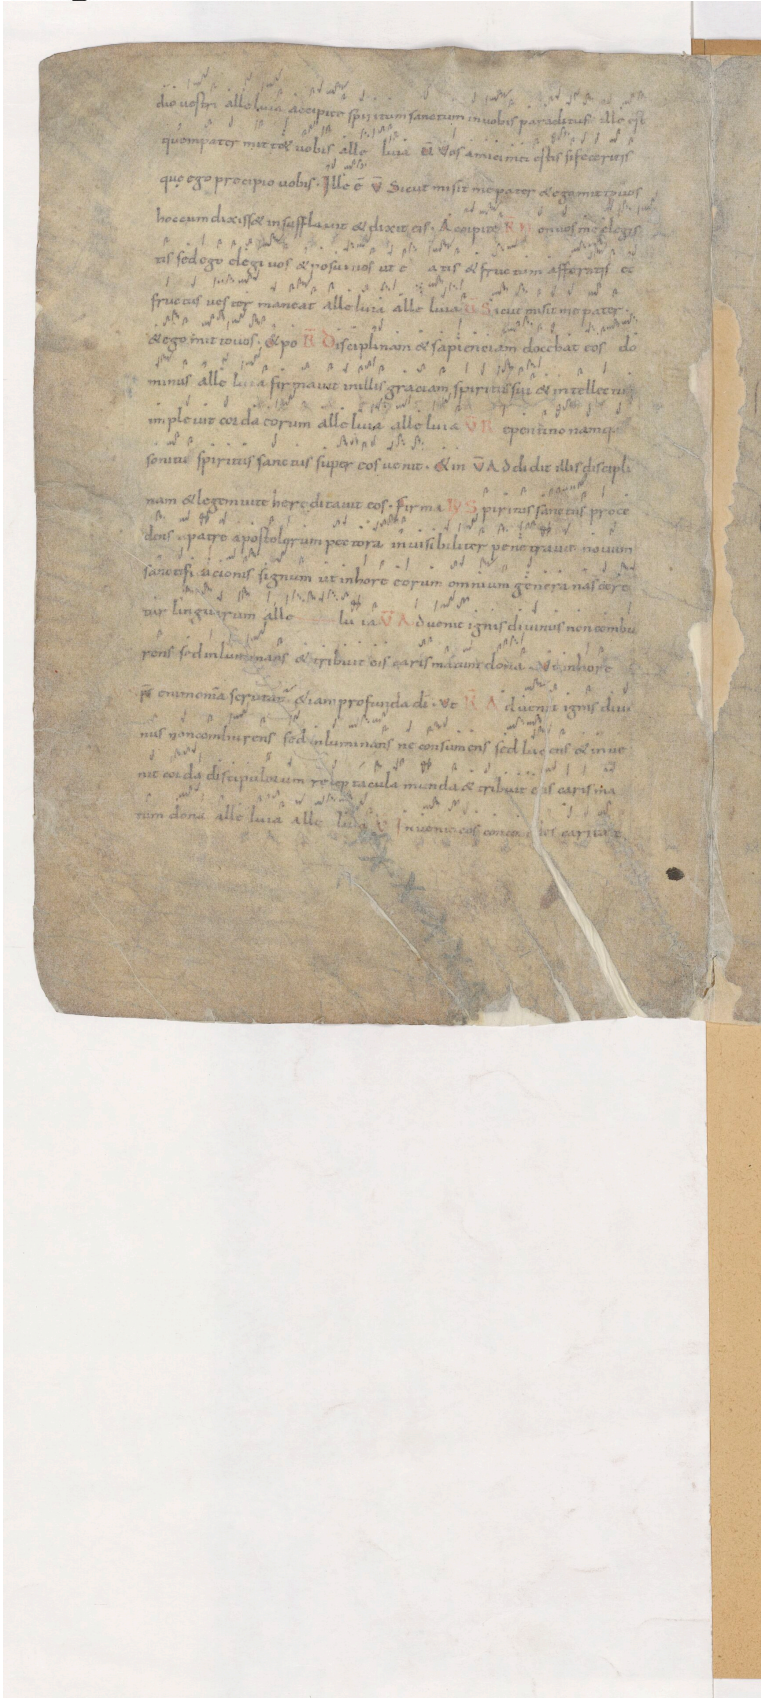 dio vostri alleluia accipite spiritum sanctum in vobis paraclitus ille est
quem pater mittet vobis alle luia V̄ Vos amici mei estis si feceritis
que ego precipio vobis. Ille ē V̄ Sicut misit me pater & ego mitto vos
hoc cum dixiss& insufflavit & dixit eis. Accipite R N on vos me elegis
tis sed ego elegi vos & posui vos ut e atis & fructum afferatis &
fructus vester maneat alleluia alle luia V̄ Sicut misit me pater.
& ego mitto vos. & po R̄ Disciplinam & sapienciam docebat eos do
minus alle luia firmavit in illis graciam spiritus sui & intellectu
implevit corda eorum alleluia alleluia V̄ R epentino namq
sonitu spiritus sanctus super eos venit. & in V̄ A dedidit illis discipli
nam & legem vite hereditavit eos. Firma S piritus sanctus proce
dens a patre apostolorum pectora invisibiliter penetravit novum
sanctificacionis signum ut in hore eorum omnium genera nascere
tur linguarum alle lu ia V̄ A dvenit ignis divinus non combu
rens sed inluminans & tribuit eis carismatum dona. Ut in hore
& iam profunda dī. Ut R̄ A dvenit ignis divi
nus non comburens sed inluminans ne consumens sed lucens & inve
nit corda discipulorum receptacula munda & tribuit eis carisma
tum dona alleluia alle luia V̄ Invenit eos concordes caritate